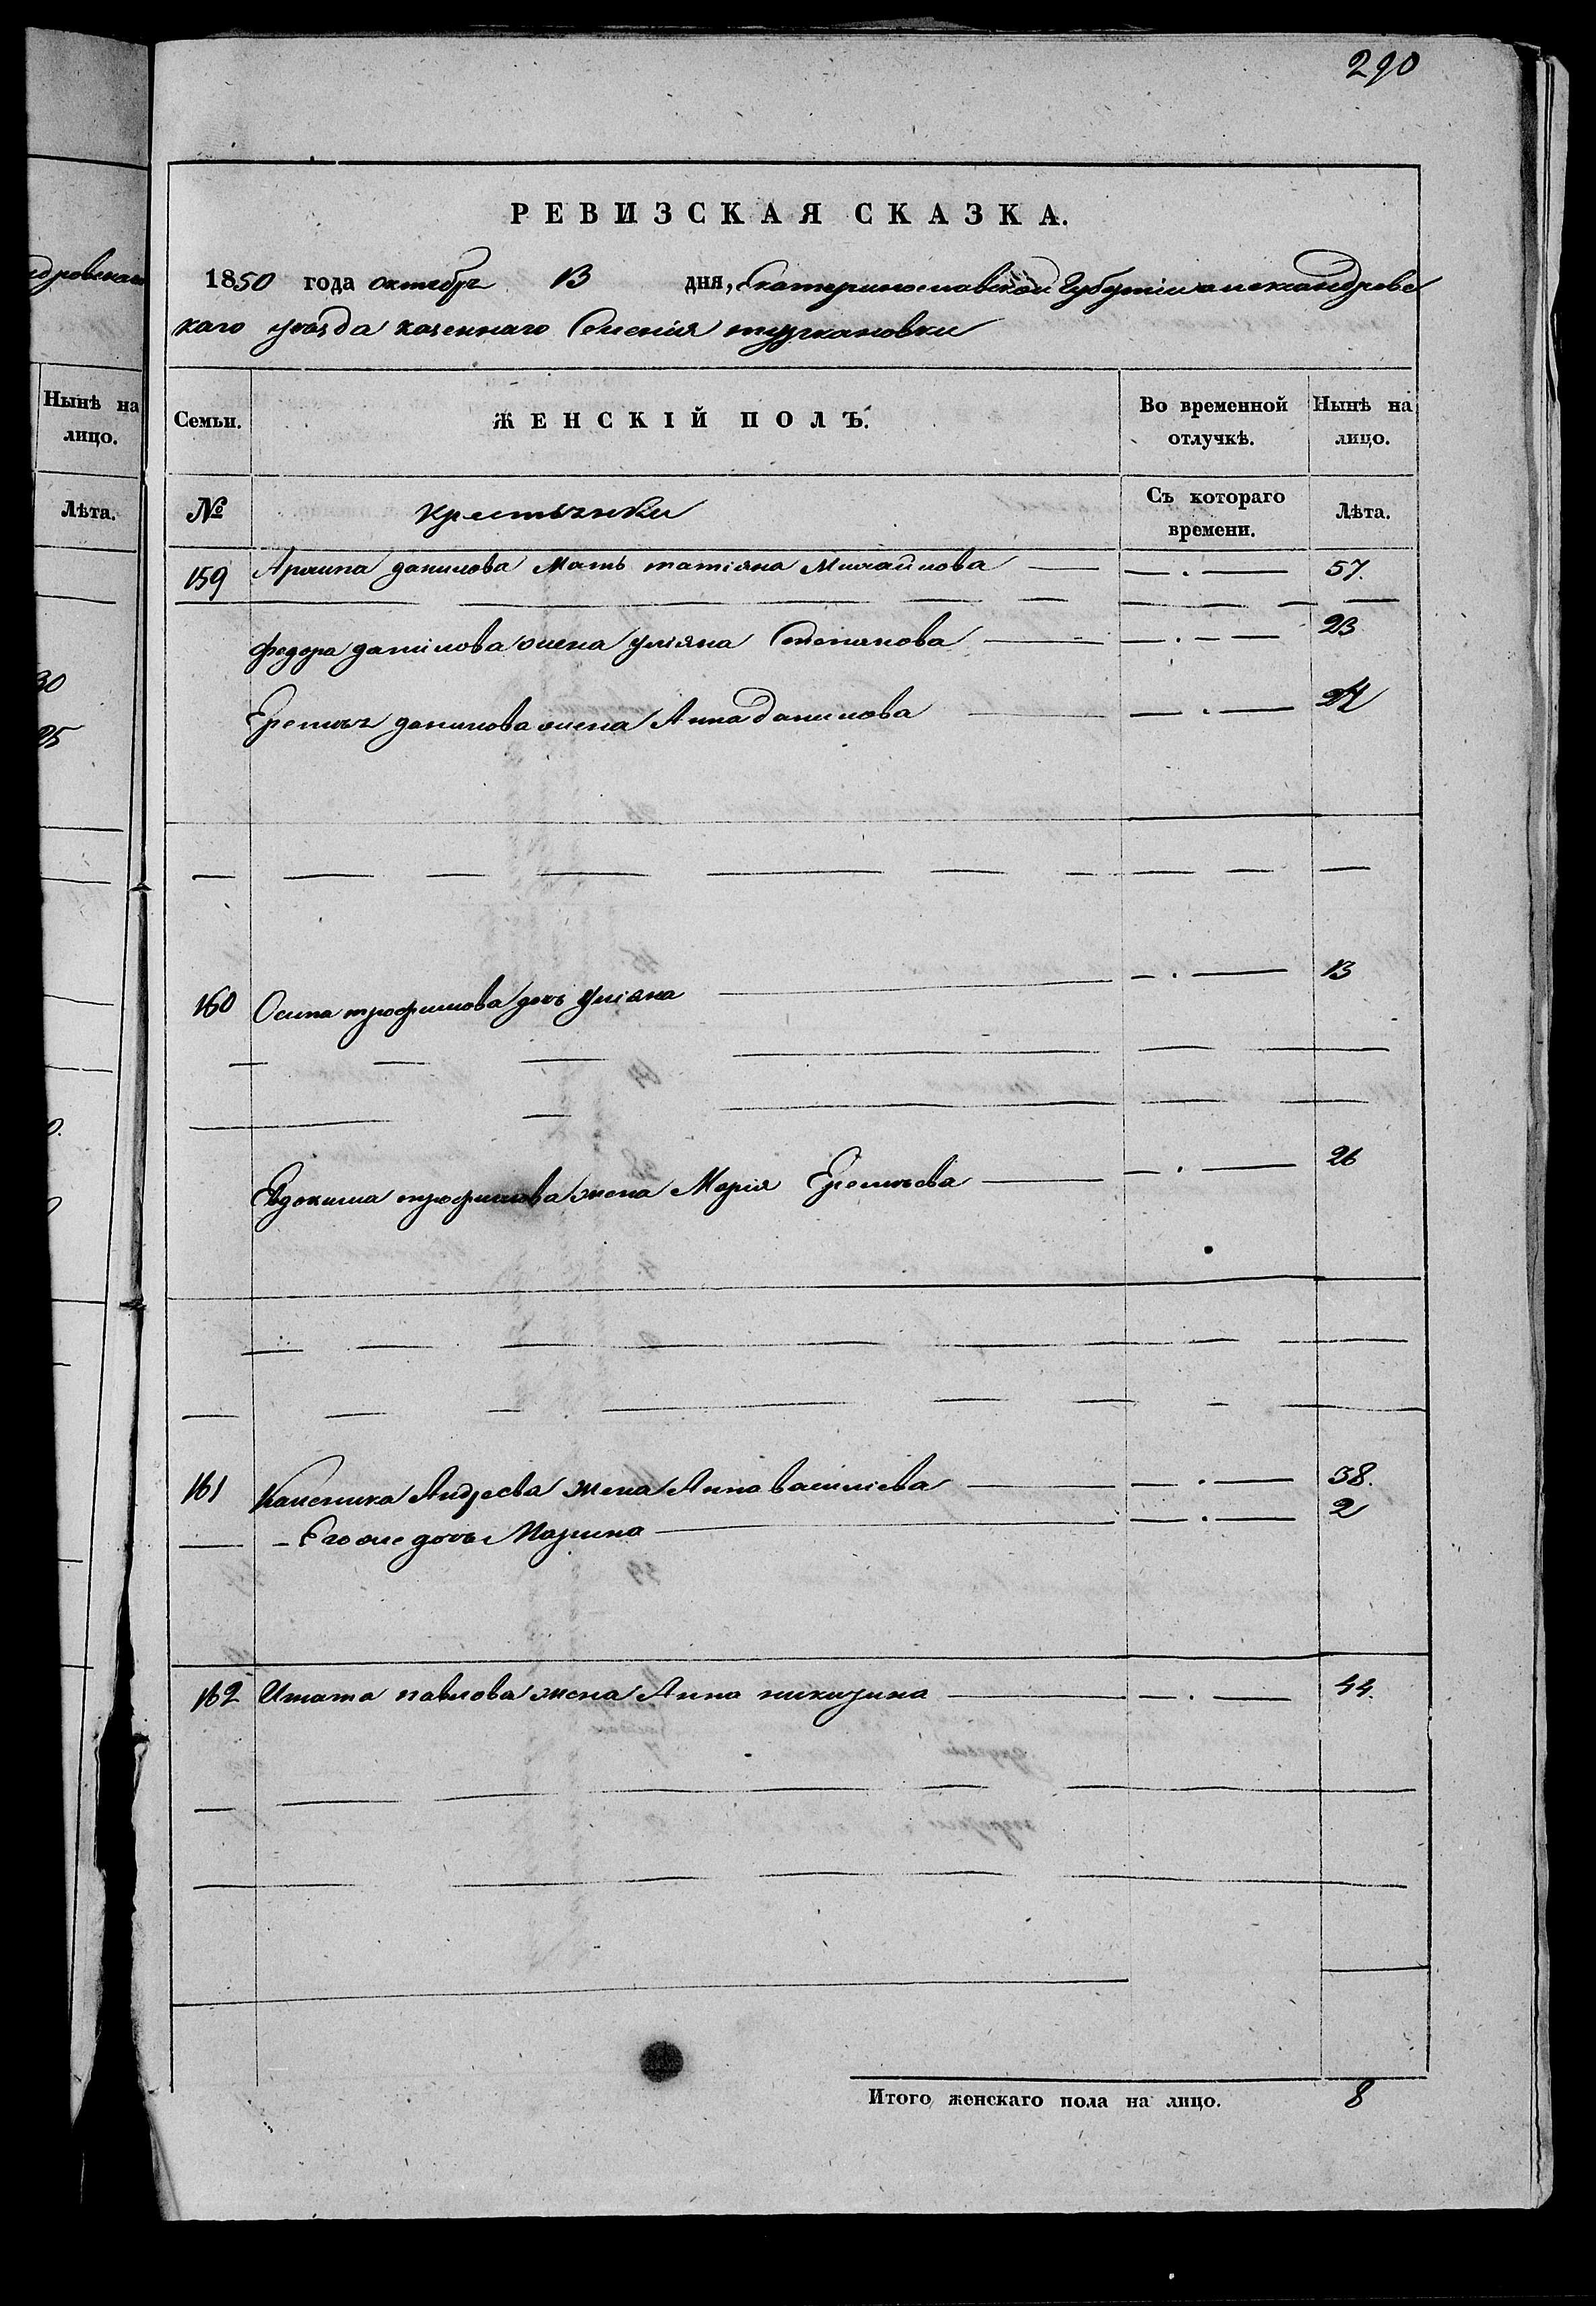 290
РЕВИЗСКАЯ СКАЗКА.
1850 года октября 13 дня, Екатеринославской Губернiи александровс
каго уѣзда казеннаго Селенiя туркановки
Семьи. ЖЕНСКIЙ ПОЛЪ. Во временной отлучкѣ. Нынѣ на лицо.
№ крестьянки Съ котораго времени. Лѣта.
159 Архипа данилова Мать татiяна Михайлова — . — 57.
федора данилова жена улiяна Степанова — . — 23
Еремѣя данилова жена Анна данилова — . — 24
160 Осипа трофимова дочь улiяна — . — 13
Евдокима трофимова жена Марiя Еремѣева — . — 26
161 Каленика Андреева жена Анна василiева — . — 38.
Его же дочь Марина — . — 2
162 Игната павлова жена Анна никизина — . — 44.
Итого женскаго пола на лицо. 8
дровскаго
Нынѣ на
лицо.
Лѣта.
30
25